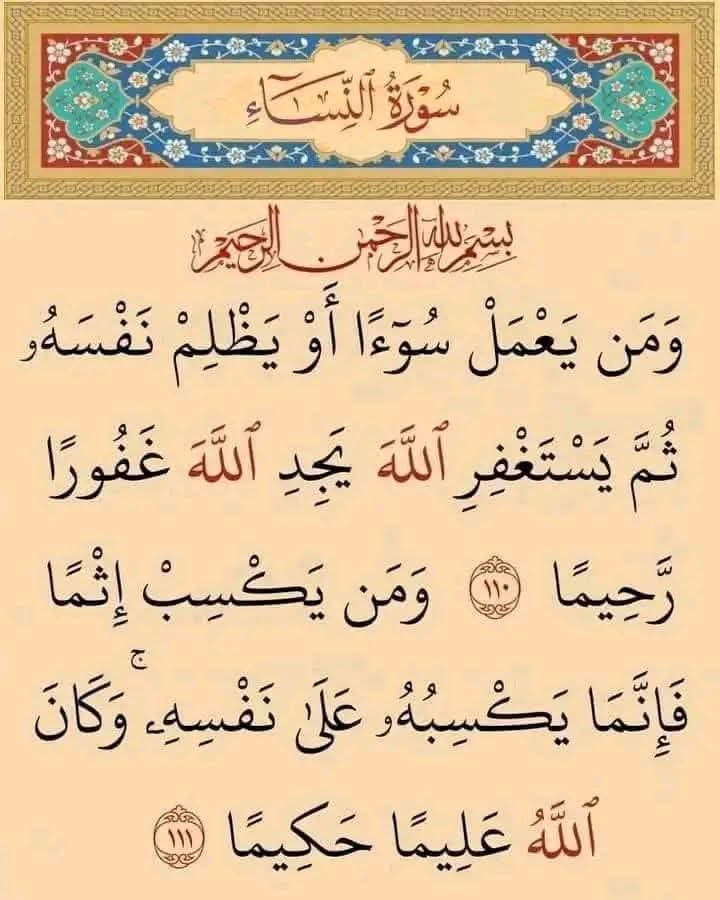 سُورَةُ ٱلنِّسَآءِ
بِسْمِ ٱللَّهِ ٱلرَّحْمَٰنِ ٱلرَّحِيمِ
وَمَن يَعْمَلْ سُوٓءًا أَوْ يَظْلِمْ نَفْسَهُۥ
ثُمَّ يَسْتَغْفِرِ ٱللَّهَ يَجِدِ ٱللَّهَ غَفُورًا
رَّحِيمًا ١١٠ وَمَن يَكْسِبْ إِثْمًا
فَإِنَّمَا يَكْسِبُهُۥ عَلَىٰ نَفْسِهِۦ ۚ وَكَانَ
ٱللَّهُ عَلِيمًا حَكِيمًا ١١١